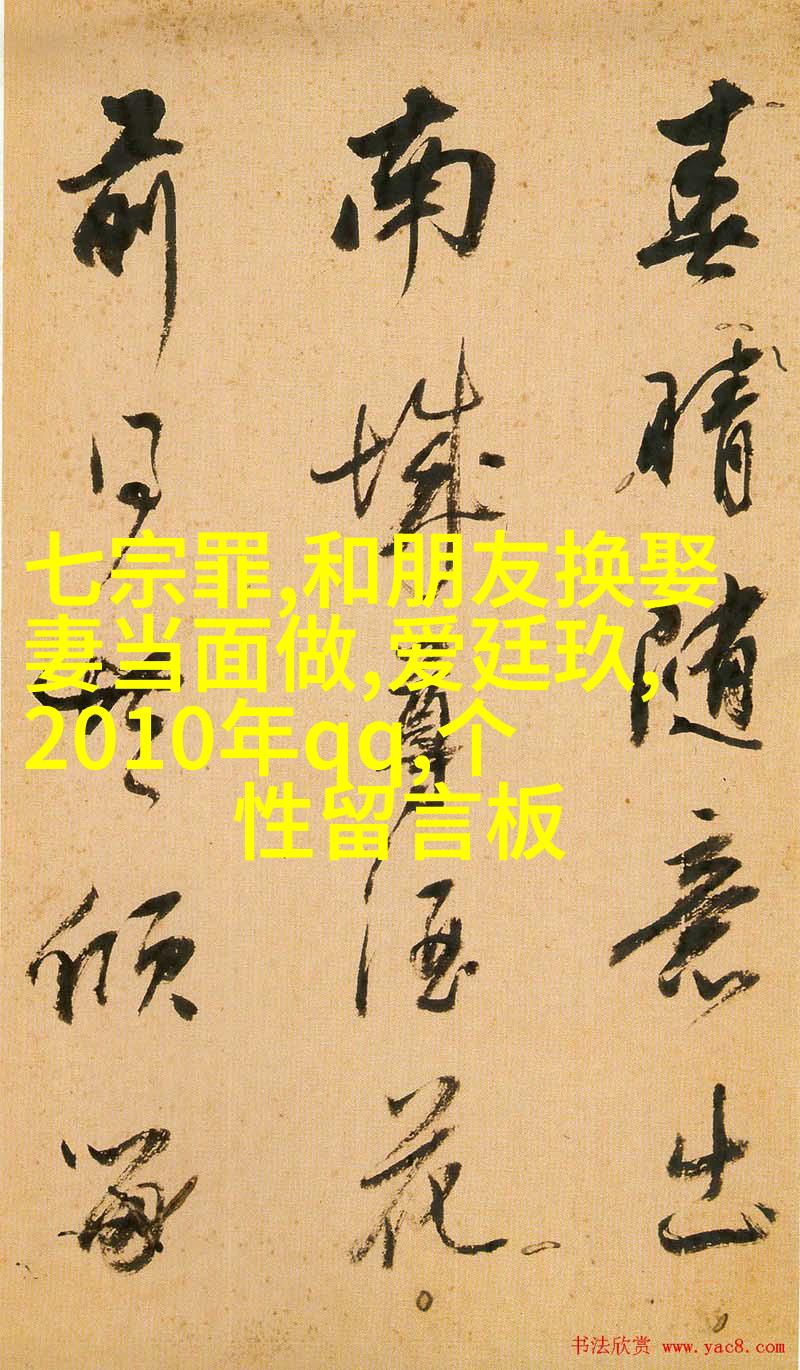 春晴随意出
南城尊酒花
前倾
七宗罪,和朋友换娶
妻当面做,爱廷玖,
2010年qq,个
性留言板
书法欣赏 www.yac8.com